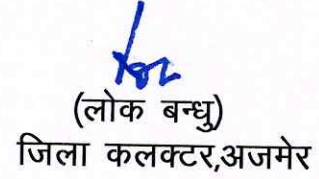 (लोक बन्धु)
जिला कलक्टर,अजमेर